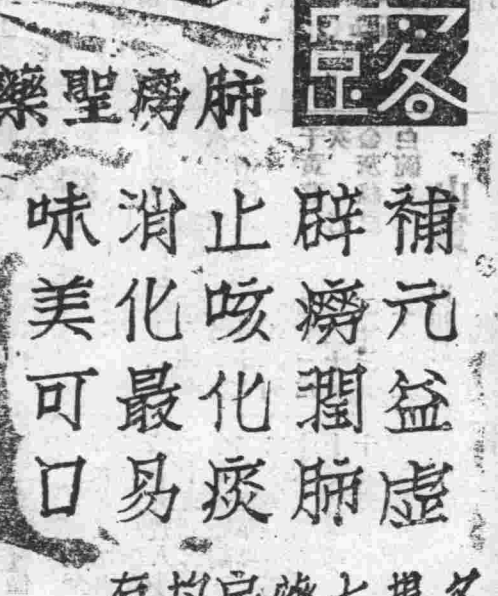 露
肺癆聖藥
補元益虛
辟癆潤肺
止咳化痰
消化最易
味美可口